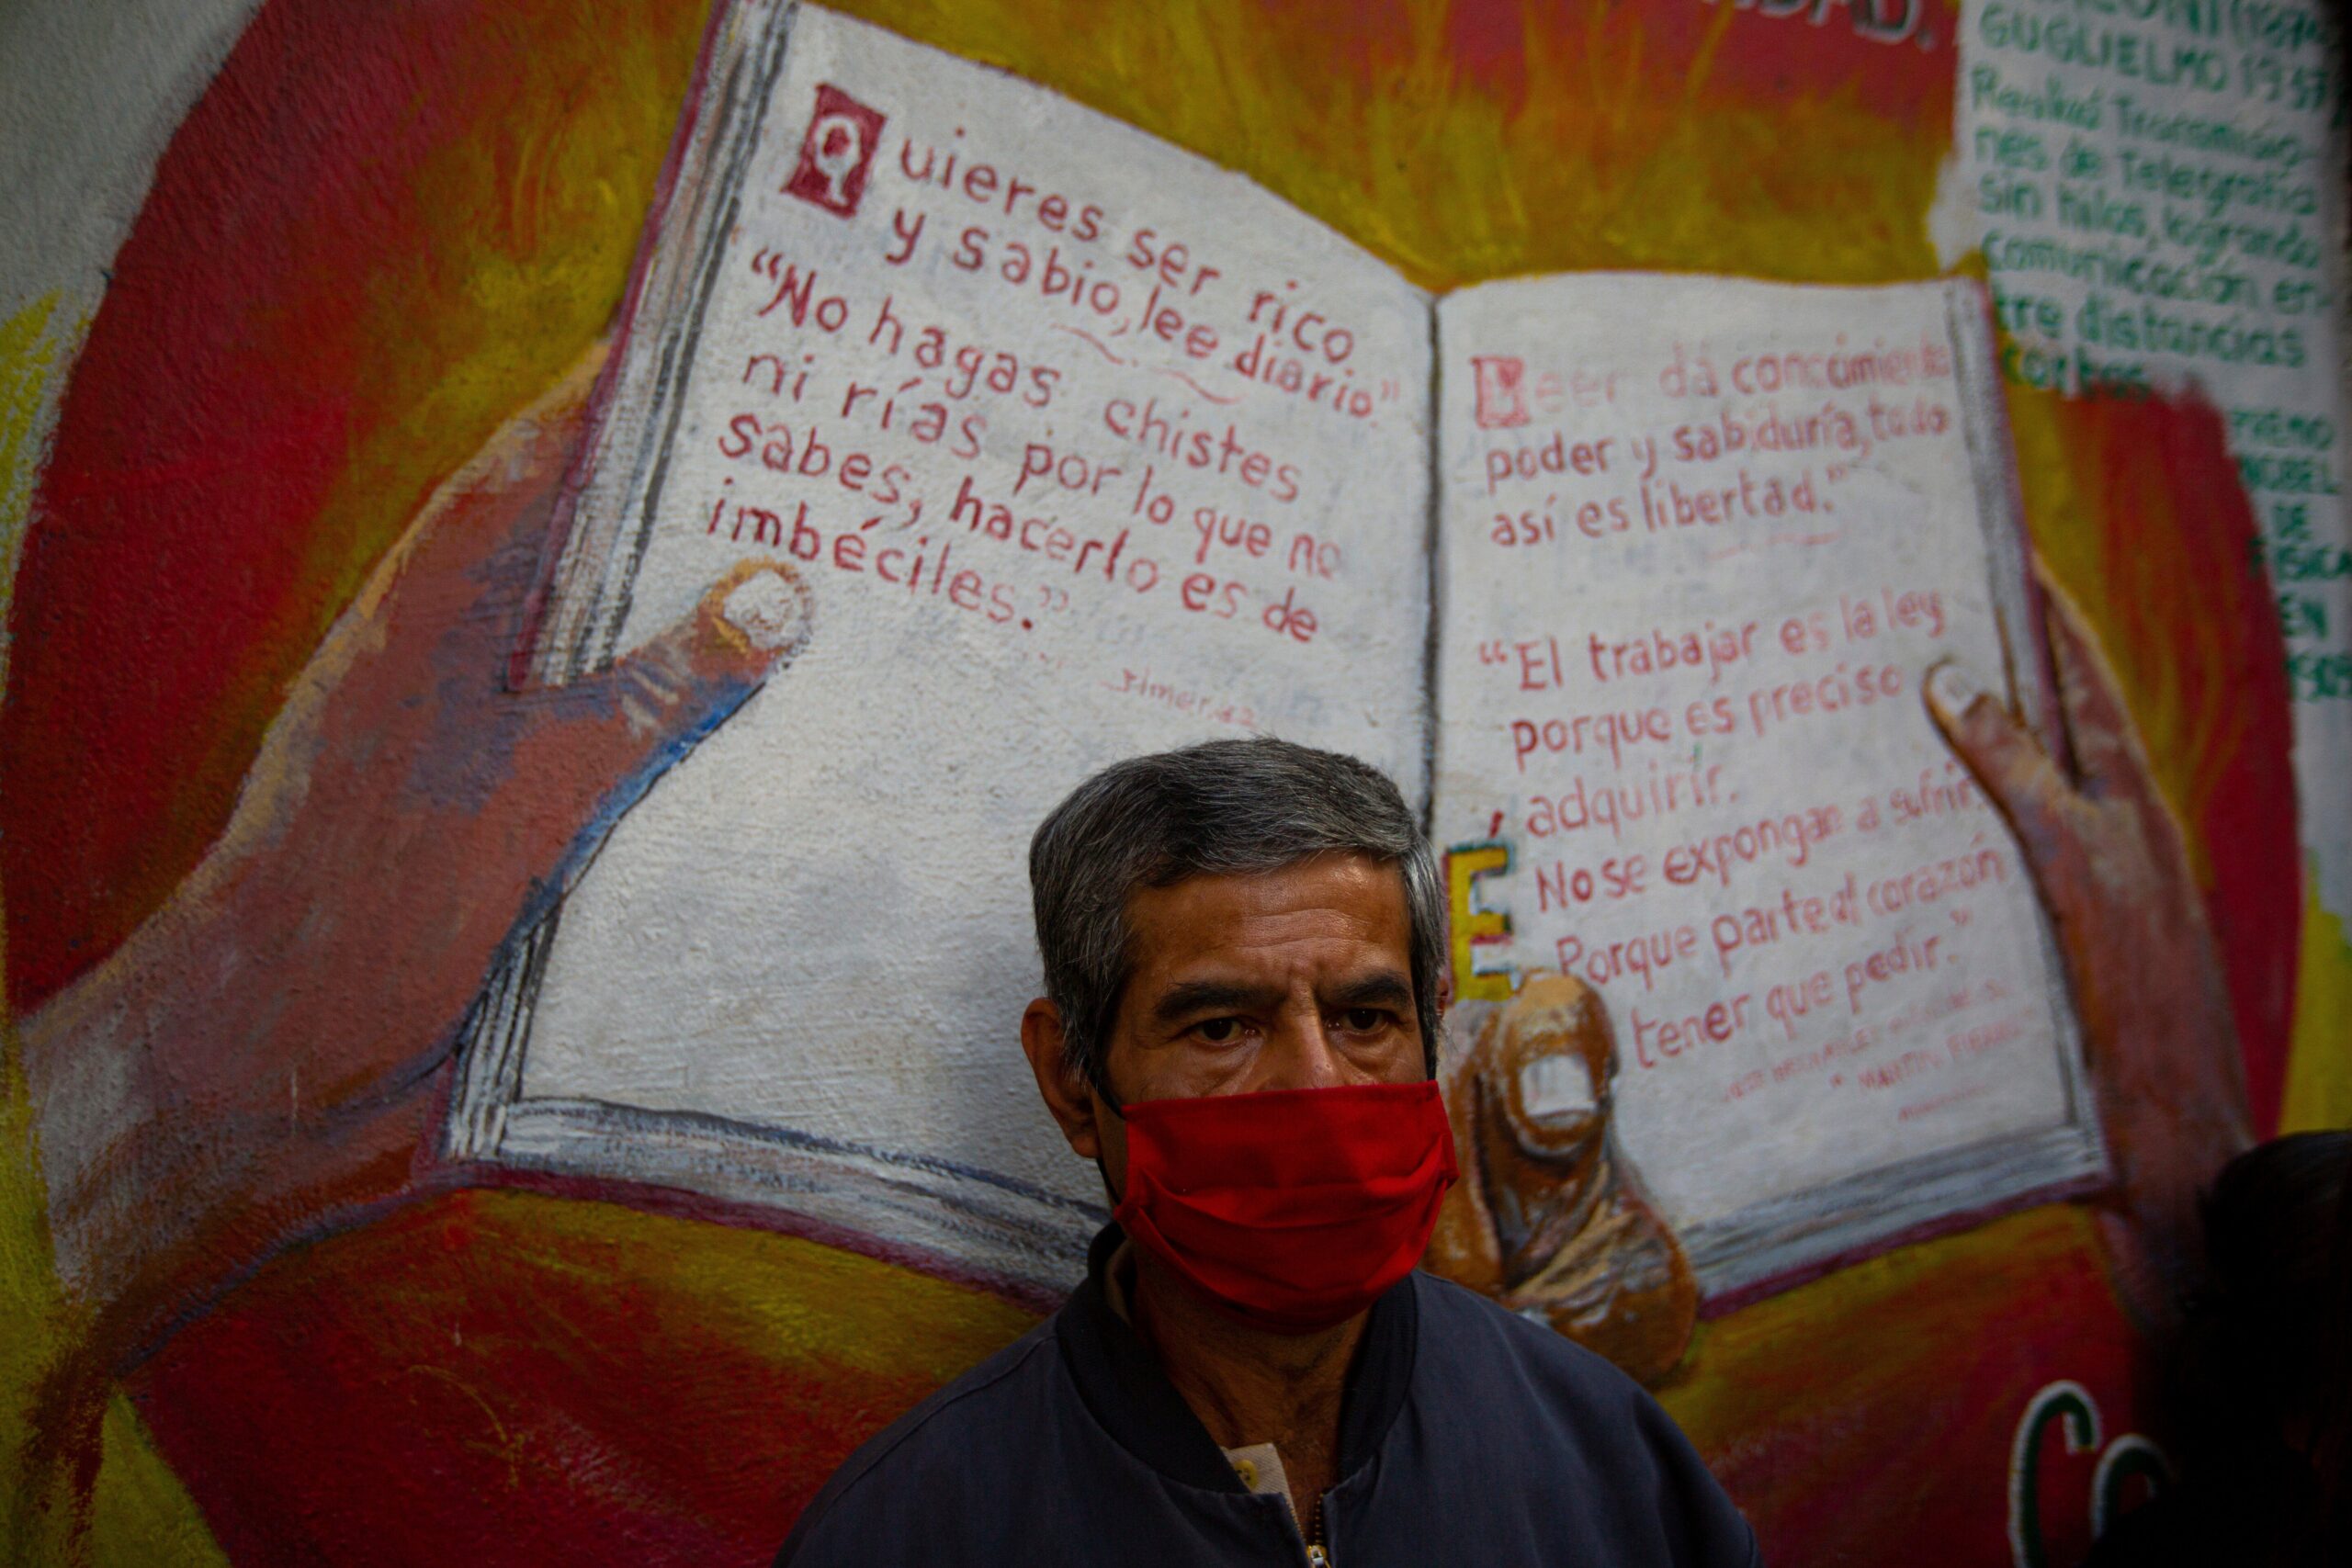 DAD.
Quieres ser rico
y sabio, lee diario"
"No hagas chistes
ni rías por lo que no
sabes, hacerlo es de
imbéciles."
Leer dá
poder y sabiduría, todo
así es libertad."
"El trabajar es la ley
porque es preciso
adquirir.
No se expongan a sufrir.
Porque parte el corazón
tener que pedir."
É
GUGLIELMO
Realizó Transmisio-
nes de Telegrafía
sin hilos, logrando
comunicación en-
tre distancias
cortas
PREMIO
NOBEL
DE
FISICA
EN
Co